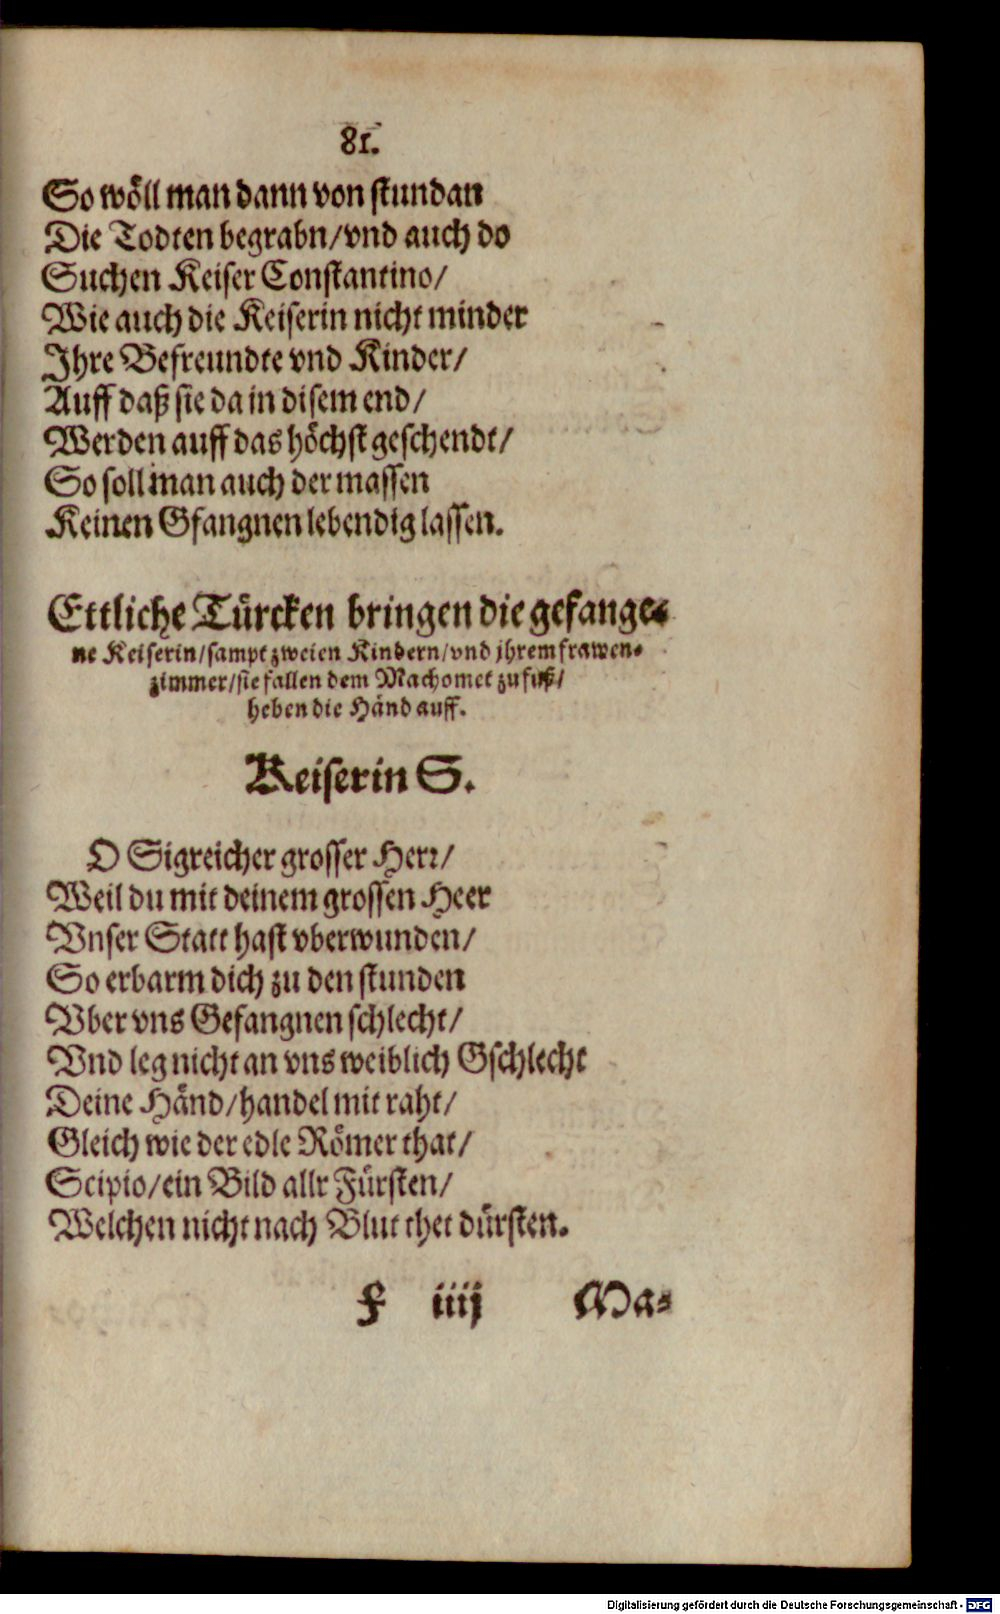 81.
So wöll man dann von stundan
Die Todten begrabn/vnd auch do
Suchen Keiser Constantino/
Wie auch die Keiserin nicht minder
Jhre Befreundte vnd Kinder/
Auff daß sie da in disem end/
Werden auff das höchst geschendt/
So soll man auch der massen
Keinen Gfangnen lebendig lassen.
Ettliche Türcken bringen die gefange-
ne Keiserin/sampt zweien Kindern/vnd jhrem frawen-
zimmer/sie fallen dem Machomet zu fuß/
heben die Händ auff.
Keiserin S.
O Sigreicher grosser Herr/
Weil du mit deinem grossen Heer
Vnser Statt hast vberwunden/
So erbarm dich zu den stunden
Vber vns Gefangnen schlecht/
Vnd leg nicht an vns weiblich Gschlecht
Deine Händ/handel mit raht/
Gleich wie der edle Römer that/
Scipio/ein Bild allr Fürsten/
Welchen nicht nach Blut thet dürsten.
F iiij Ma-
Digitalisierung gefördert durch die Deutsche Forschungsgemeinschaft - DFG